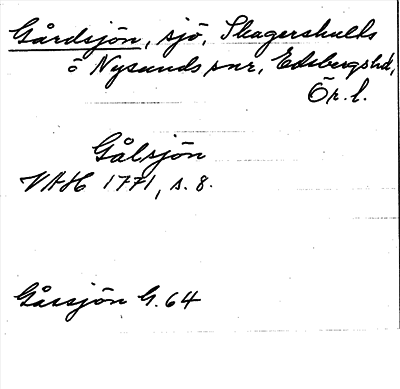 Gårdsjön, sjö, Skagershults
o Nysunds snr, Edsbergs hd,
Ör. l.
Gålsjön
VAH 1771, s. 8.
Gåssjön G. 64